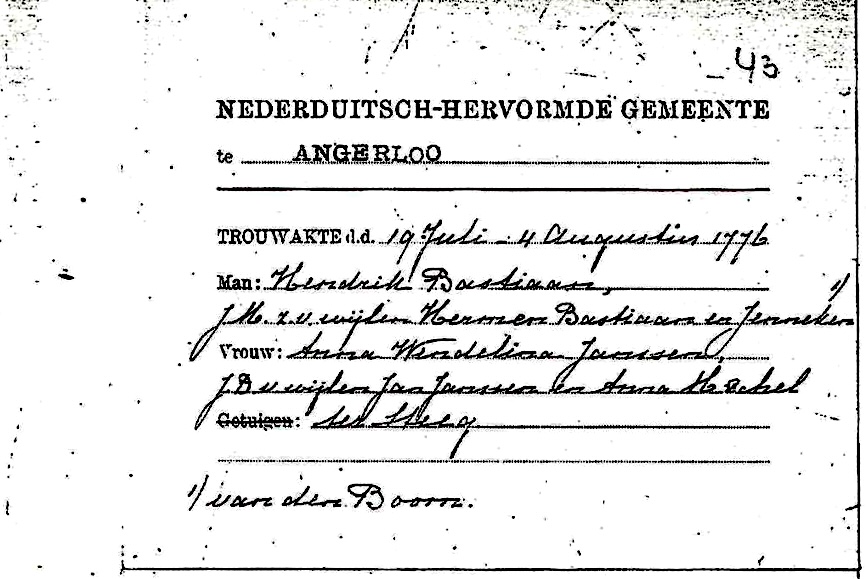 43
NEDERDUITSCH-HERVORMDE GEMEENTE
te ANGERLOO
TROUWAKTE d.d. 19 Juli - 4 Augustus 1776
Man: Hendrik Bastiaan, 1)
J.M. z.v. wijlen Hermen Bastiaan en Jenneken
Vrouw: Anna Wendelina Janssen,
J D v wijlen Jan Janssen en Anna Mechel
Getuigen: ter Steeg
1) van den Boom.